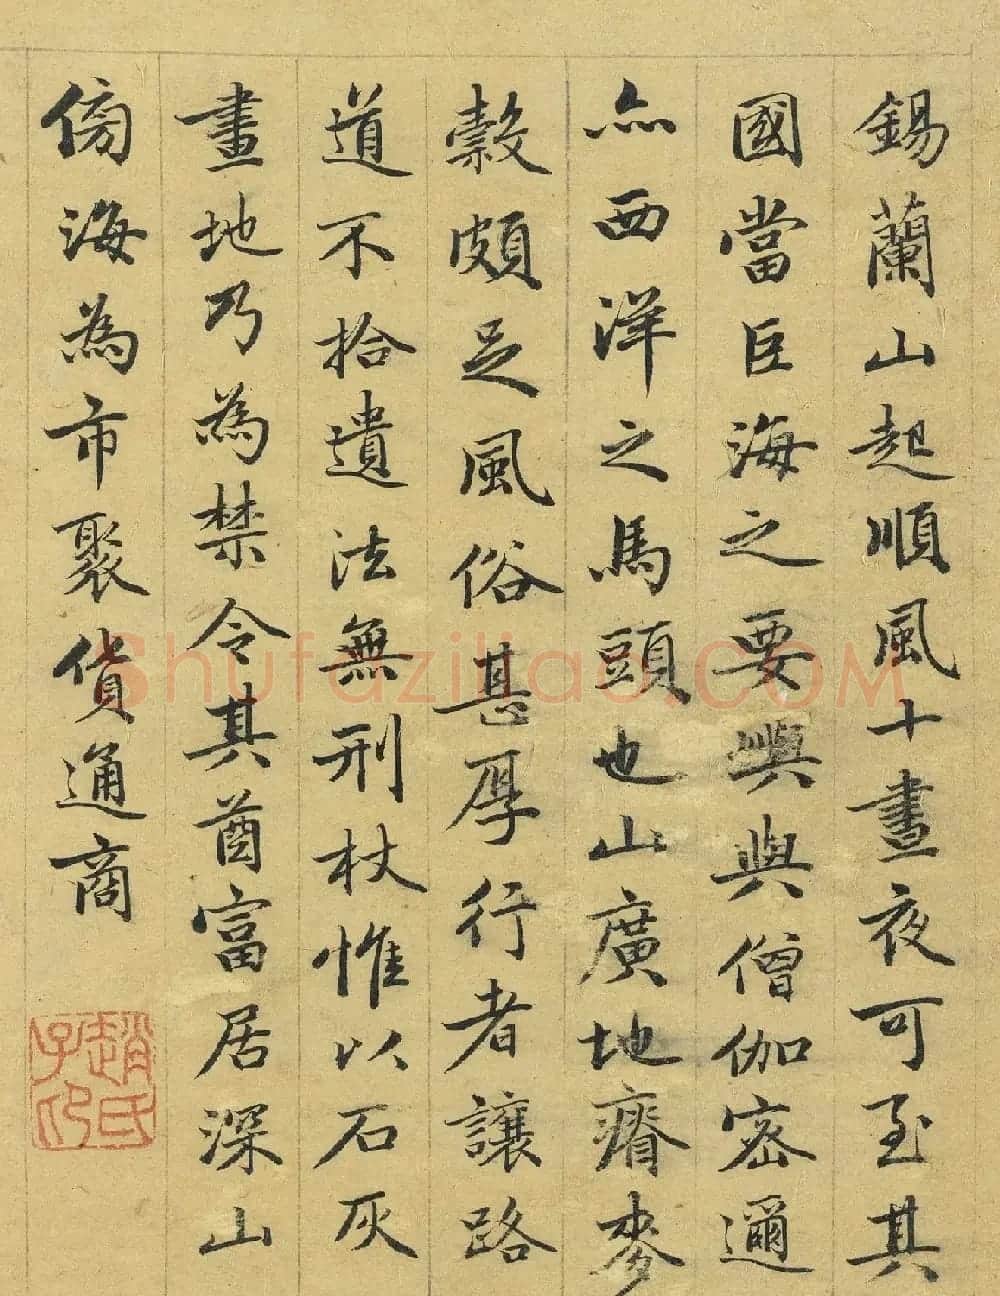 錫蘭山起順風十晝夜可至其
國當巨海之要嶼與僧伽密邇
亦西洋之馬頭也山廣地瘠麥
穀頗足風俗甚厚行者讓路
道不拾遺法無刑杖惟以石灰
畫地乃為禁令其酋富居深山
傍海為市聚貨通商
趙氏子印
Shufaziliao.COM